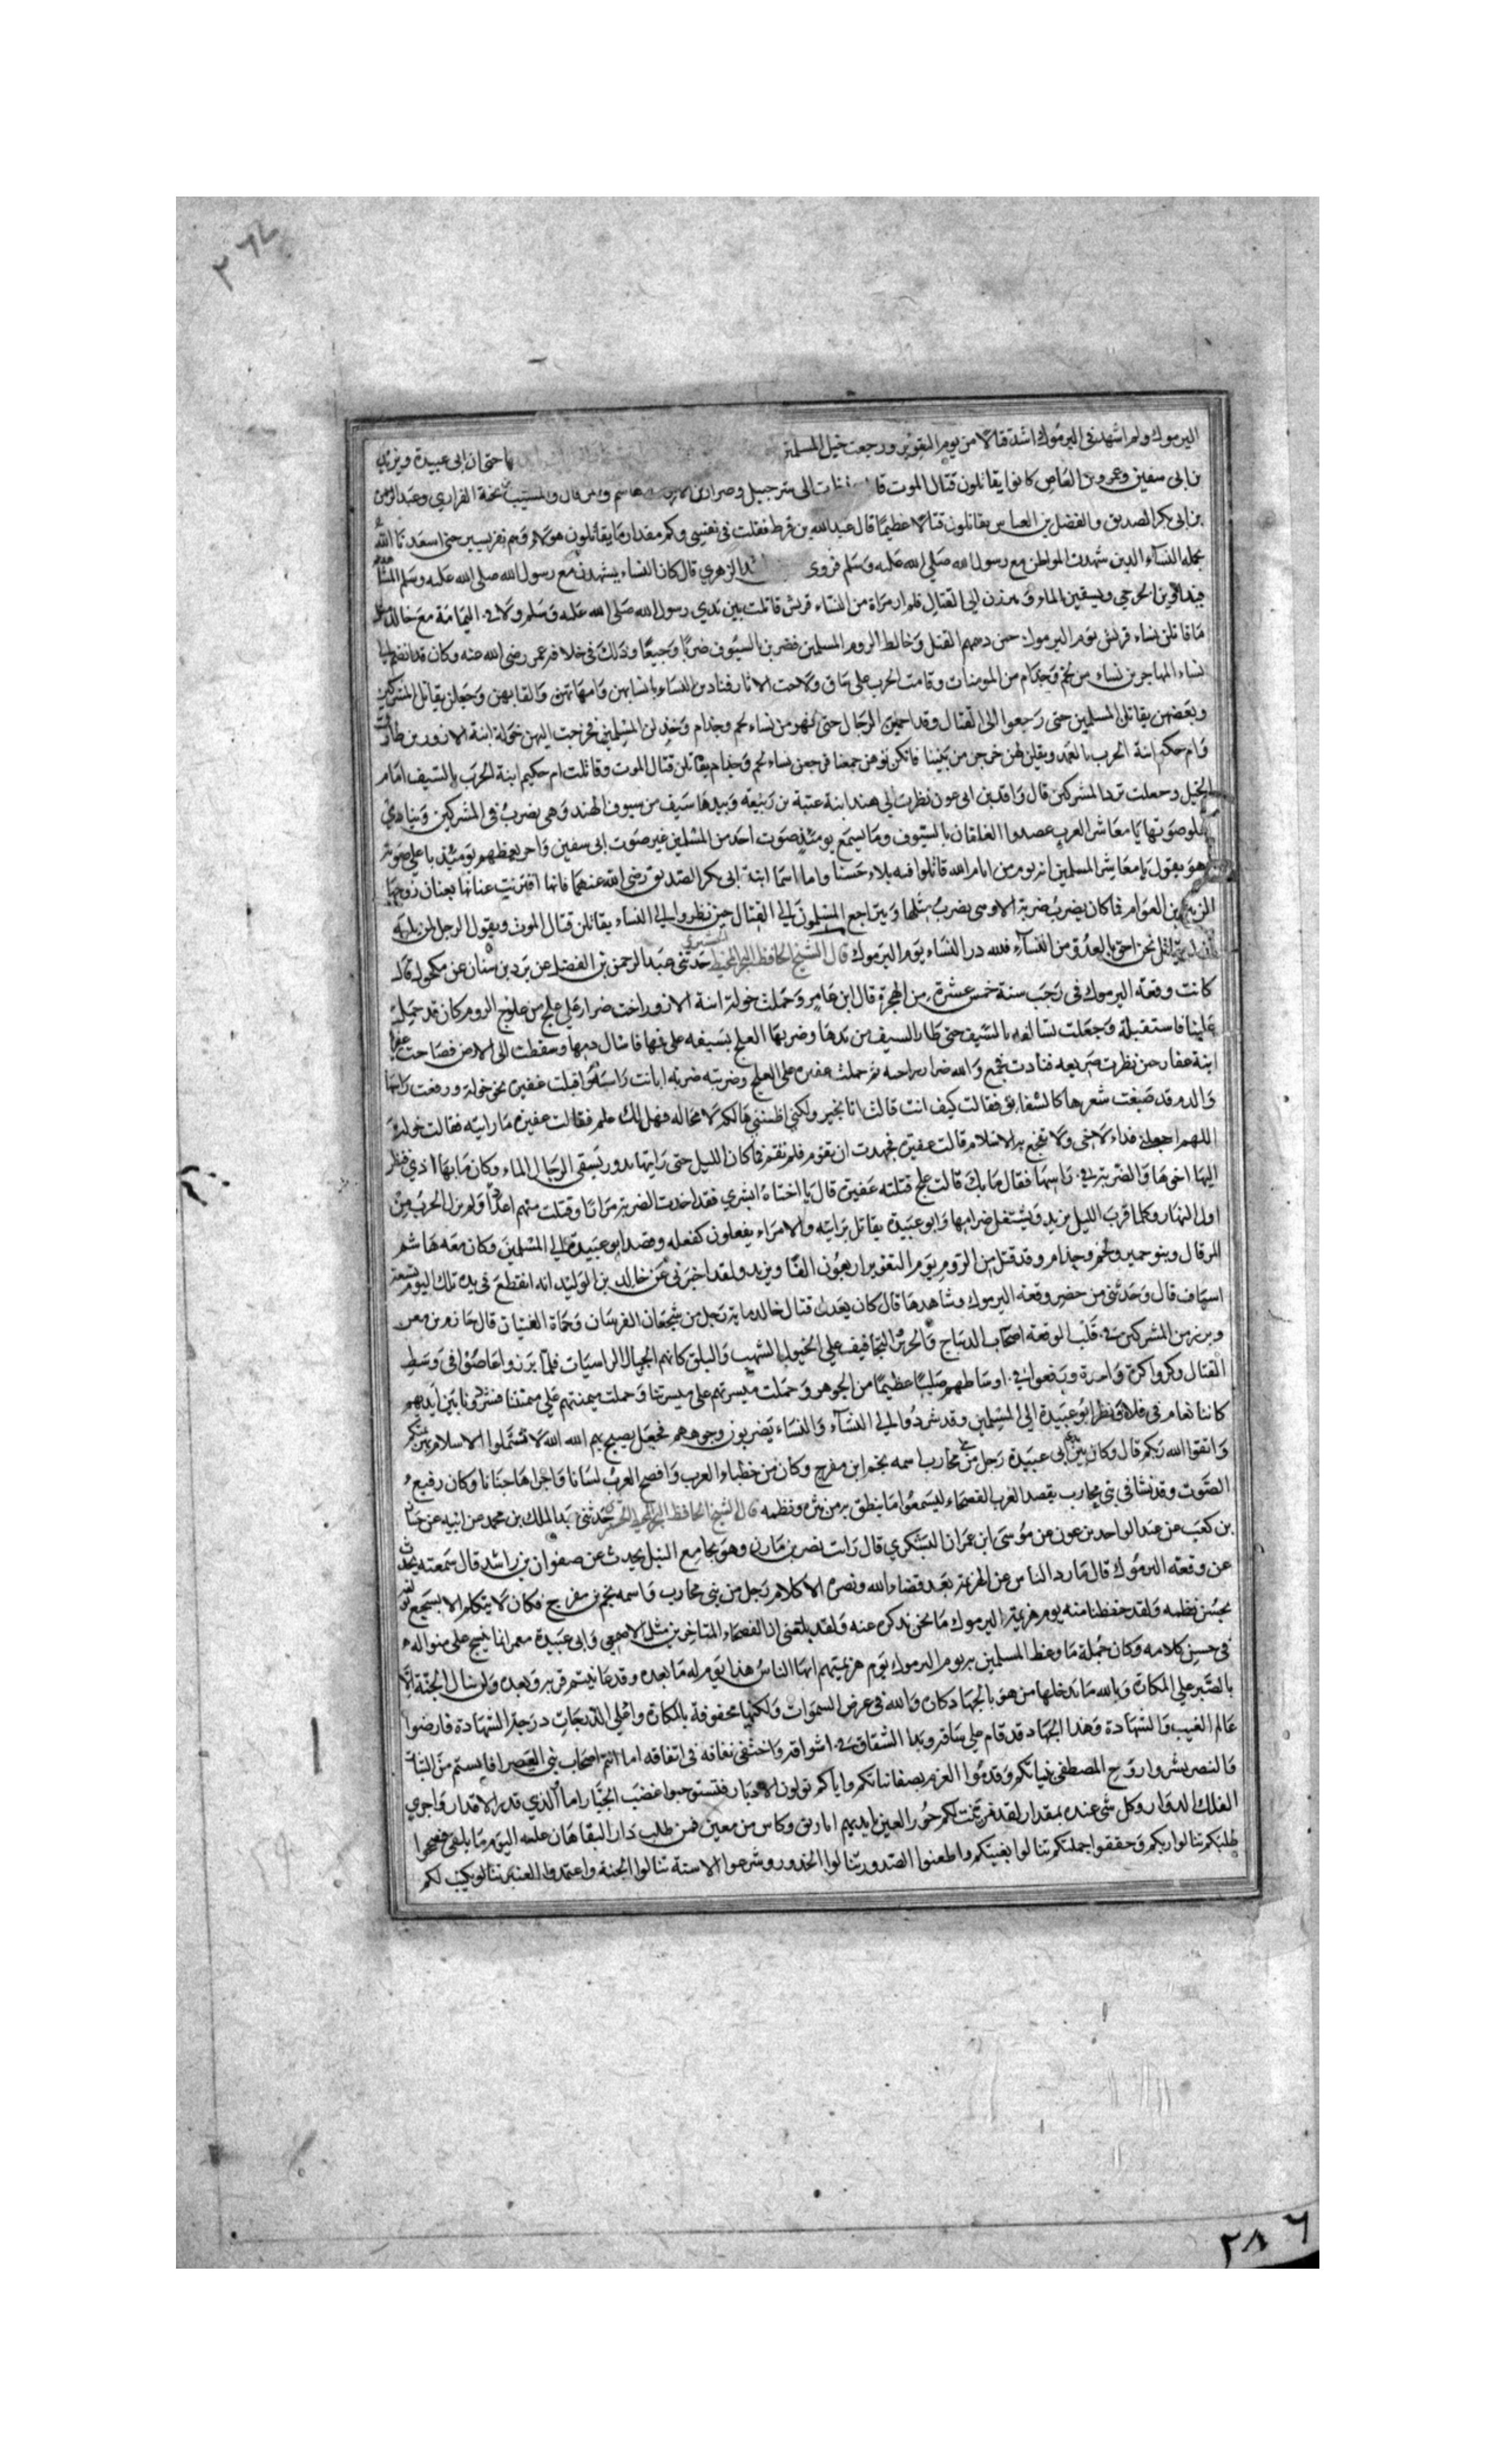 ٢٦٤
اليرموك ولم اشهد في اليرموك اشد قتالا من يوم التعوير ورجعت خيل المسلمين حتى ان ابى عبيدة ويزيد
بن ابى سفين وعمرو بن العاص كانوا يقاتلون قتال الموت الى شرجبيل وضرار بن هاشم والمسيب بن نجبة الفزاري وعبد الرحمن
بن ابى بكر الصديق والفضل بن العباس يقاتلون قتالا عظيما قال عبد الله بن قرط فقلت في نفسي وكم مقدار ما يقاتلون هولاء وهم نفر يسير حتى اسعدنا الله
بحمله النساء الذين شهدت المواطن مع رسول الله صلى الله عليه وسلم فروى الزهري قال كان النساء يشهدن مع رسول الله صلى الله عليه وسلم
فيداوين الجرحى ويسقين الماء ويبرزن الى القتال فلم ار مراة من النساء قريش قاتلت بين يدي رسول الله صلى الله عليه وسلم ولا في اليمامة مع خالد
ما قاتلن نساء قريش يوم اليرموك حين دهمهم القتل وخالط الروم المسلمين فضربن بالسيوف ضربا وجيعا وذلك في خلافة عمر رضي الله عنه وكان قد
نساء المهاجرين نساء من لخم وجذام من المومنات وقامت الحرب على ساق ولاحت الاثار فنادين النساء بانسابهن وامهاتهن والقابهن وجعلن يقاتلن المشركين
وبعضهن يقاتلن المسلمين حتى رجعوا الى القتال وقد احمين الرجال حتى نساء لخم وجذام المسلمين فخرجت اليهن خولة ابنة الازور بن طارق
وام حكيم ابنة الحرب بالعمد ويقلن لهن خرجن من بيننا فرجعن نساء لخم وجذام يقاتلن قتال الموت وقاتلت ام حكيم ابنة الحرب بالسيف امام
الخيل وجعلت المشركين قال واقد بن ابى عون نظرت الى هند ابنة عتبة بن ربيعة وبيدها سيف من سيوف الهند وهي يضرب في المشركين وينادي
صوتها يا معاشر العرب عضدوا الغلفان بالسيوف وما يسمع يومئذ صوت احد من المسلمين غير صوت ابى سفين يومئذ باعلى صوته
وهو يقول يا معاشر المسلمين انه يوم من ايام الله قاتلوا فيه بلاء حسنا واما اسما ابنة ابى بكر الصديق رضي الله عنهما فانها اقترنت عنانها بعنان زوجها
الزبير بن العوام فما كان يضرب ضربة الا وهي يضرب مثلها ويتراجع المسلمون الى القتال حين نظروا الى النساء يقاتلن قتال الموت ويقول الرجل لمن يليه
نحن احق بالعدو من النساء فلله در النساء يوم اليرموك قال الشيخ الحافظ حدثنى عبد الرحمن بن الفضل عن برد بن سنان عن مكحول قال
كانت وقعة اليرموك في رجب سنة خمس عشرة من الهجرة قال ابن عامر وحملت خولة ابنة الازور اخت ضرار على علج من علوج الروم كان قد حمل
علينا فاستقبلته وجعلت تسايفه بالسيف حتى طار السيف من يدها وضربها العلج بسيفه على فاسال دمها وسقطت الى الارض فصاحت
ابنة عفار حين نظرت صريعه فنادت فجع والله ضرار براحمه ثم حملت عفيره على العلج وضربته ضربة ابانت راسه واقبلت عفيره نحو خولة ورفعت راسها
والدم قد صبغت شعرها كالشقائق فقالت كيف انت قالت انا بخير ولكني اظنني هالكه لا محاله فهل لك علم فقالت عفيره ما رايته فقالت خولة
اللهم اجعلني فداء لاخى ولا تفجع به الاسلام قالت عفيره فجهدت ان تقوم فلم تقم فما كان الليل حتى رايتها تدور تسقى الرجال الماء وكان ما بها اذى فنظر
اليها اخوها والضربة في راسها فقال ما بك قالت علج قتلته عفيرة قال يا اختاه ابشري فقد اخذت الضربة مرارا وقتلت منهم اعدادا ولم يزل الحرب من
اول النهار وكلما قرب الليل يزيد ويشتعل ضرامها وابو عبيدة يقاتل برايته والامراء يفعلون كفعله وقصد ابو عبيدة الى المسلمين وكان معه هاشم
المرقال وبنو حمير ولخم وجذام وقد قتل من الروم يوم التعوير اربعون الفا ويزيد ولقد اخبرنى عن خالد بن الوليد انه انقطع في يده تلك اليوم تسعة
اسياف قال وحدثنى من حضر وقعة اليرموك وشاهدها قال كان يعدل قتال خالد ماية رجل من شجعان الفرسان وحماة الفتيان قال حازم بن معن
وبرز من المشركين في قلب الوقعه اصحاب الديباج والحرير التجافيف على الخيول الشهب والبلق كانهم الجبال الراسيات فلما برزوا غاصوا في وسط
القتال وكروا كرة واحدة ورفعوا في اوساطهم صليبا عظيما من الجوهر وحملت ميسرتهم على ميسرتنا وحملت ميمنتهم على ميمنتنا فنشرونا بين ايديهم
كاننا نعام في فلاة ونظر ابو عبيدة الى المسلمين وقد شردوا الى النساء والنساء يضربون وجوههم فجعل يصيح بهم الله الله لا تشمتوا الاسلام بينكم
واتقوا الله ربكم قال وكان بين ابى عبيدة رجل من محارب اسمه نجم ابن مفرج وكان من خطباء العرب وافصح العرب لسانا واجراها جنانا وكان رفيع
الصوت وقد نشا في بني محارب يقصد العرب الفصحاء ليسمعوا ما ينطق به من نثره ونظمه قال الشيخ الحافظ حدثنى عبد الملك بن محمد عن ابيه عن حسان
بن كعب عن عبد الواحد بن عون عن موسى ابن عمران اليشكري قال رايت نصر بن مازن وهو بجامع النيل يحدث عن صفوان بن راشد قال سمعته يحدث
عن وقعة اليرموك قال ما رد الناس عن الهزيمة بعد قضاء الله ونصره الا كلام رجل من بني محارب واسمه نجم بن مفرج فكان لا يتكلم الا يسجع
بحسن نظمه ولقد حفظنا منه يوم هزيمة اليرموك ما نحن نذكره عنه ولقد بلغنى ان الفصحاء المتاخرين مثل الاصمعي وابى عبيدة معمر انما ينسج على منواله
في حسن كلامه وكان جملة ما وعظ المسلمين به يوم اليرموك يوم هزيمتهم ايها الناس هذا يوم له ما بعده وقد عاينتم قربه وبعده ولن ننال الجنة الا
بالصبر على المكاره وبالله ما يدخلها من هو بالجهاد كان والله في عرض السموات ولكنها محفوفة بالمكاره واعلى الدرجات درجة الشهادة فارضوا
عالم الغيب والشهادة وهذا الجهاد قد قام على ساقه وبدا الشقاق في اسواقه واختفى نفاقه في اتفاقه اما انتم اصحاب
والنصر بشروا روح المصطفى بثباتكم وقدموا العزم بصفاتكم واياكم تولون الادبار فتستوجبوا غضب الجبار اما الذي قدر الاقدار واجرى
الفلك الدوار وكل شى عنده بمقدار لقد تزينت لكم حور العين بايديهم اباريق وكاس من معين فمن طلب دار البقا هان عليه اليوم ما يلقى
طلبكم تنالوا ربكم وحققوا حملتكم تنالوا بغيتكم واطعنوا الصدور تنالوا الخدور وشرعوا الاسنة تنالوا الجنة واعتمدوا لكم
٢٨٦